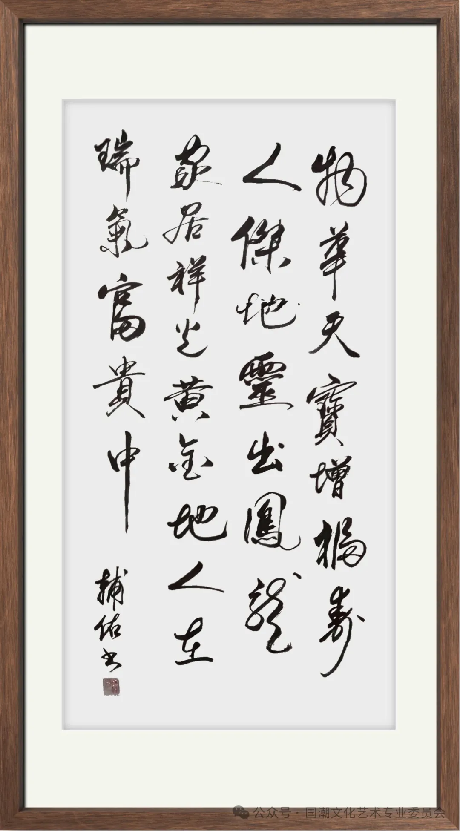 物華天寶增福壽
人傑地靈出鳳龍
家居祥光黄金地人在
瑞氣富貴中
輔佑書
公众号 · 国潮文化艺术专业委员会